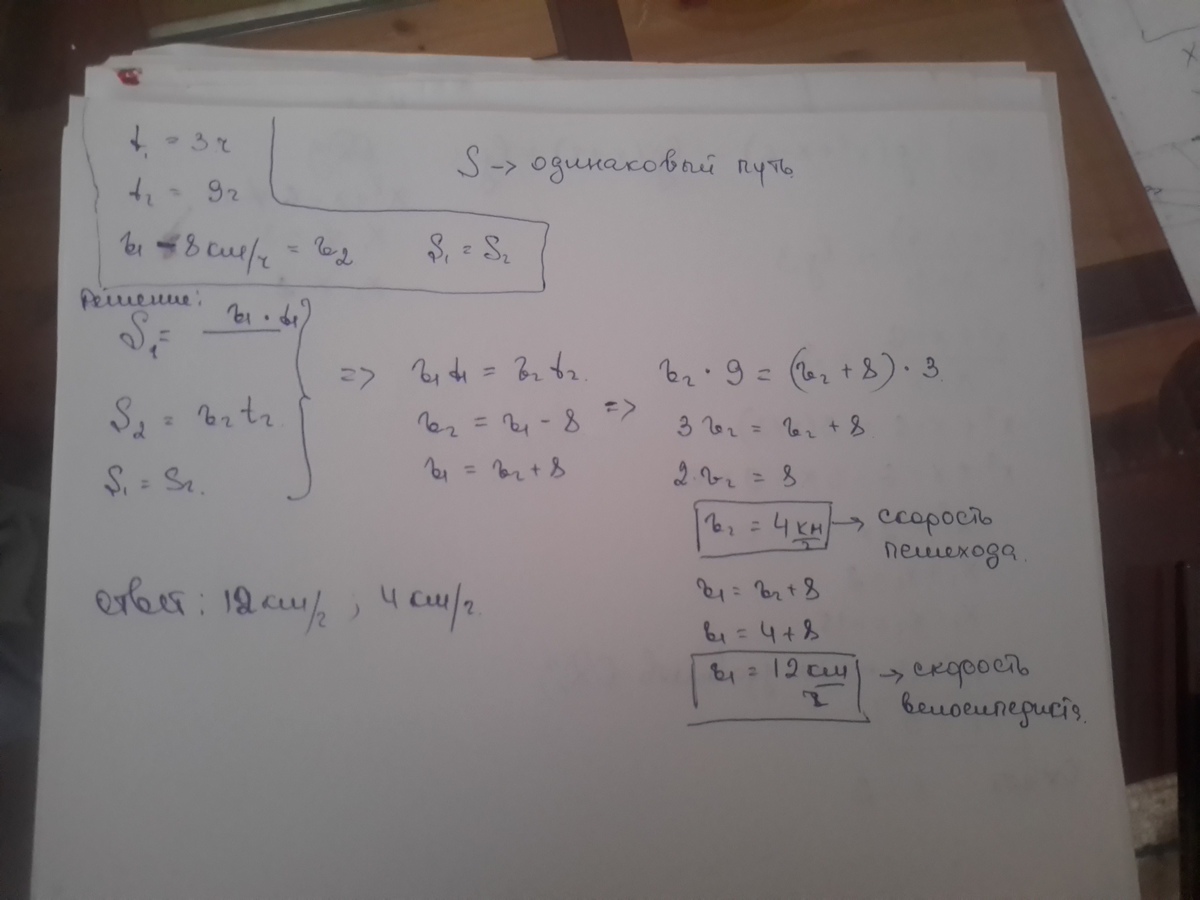 t₁ = 3ч
t₂ = 9ч
S → одинаковый путь
v₁ - 8 км/ч = v₂ S₁ = S₂
Решение:
S₁ = v₁ · t₁
S₂ = v₂ t₂
S₁ = S₂.
=> v₁ t₁ = v₂ t₂.
v₂ = v₁ - 8
v₁ = v₂ + 8
=> v₂ · 9 = (v₂ + 8) · 3
3 v₂ = v₂ + 8
2 · v₂ = 8
v₂ = 4 км/ч → скорость
пешехода.
v₁ = v₂ + 8
v₁ = 4 + 8
v₁ = 12 км/ч → скорость
велосипедиста.
Ответ: 12 км/ч ; 4 км/ч.